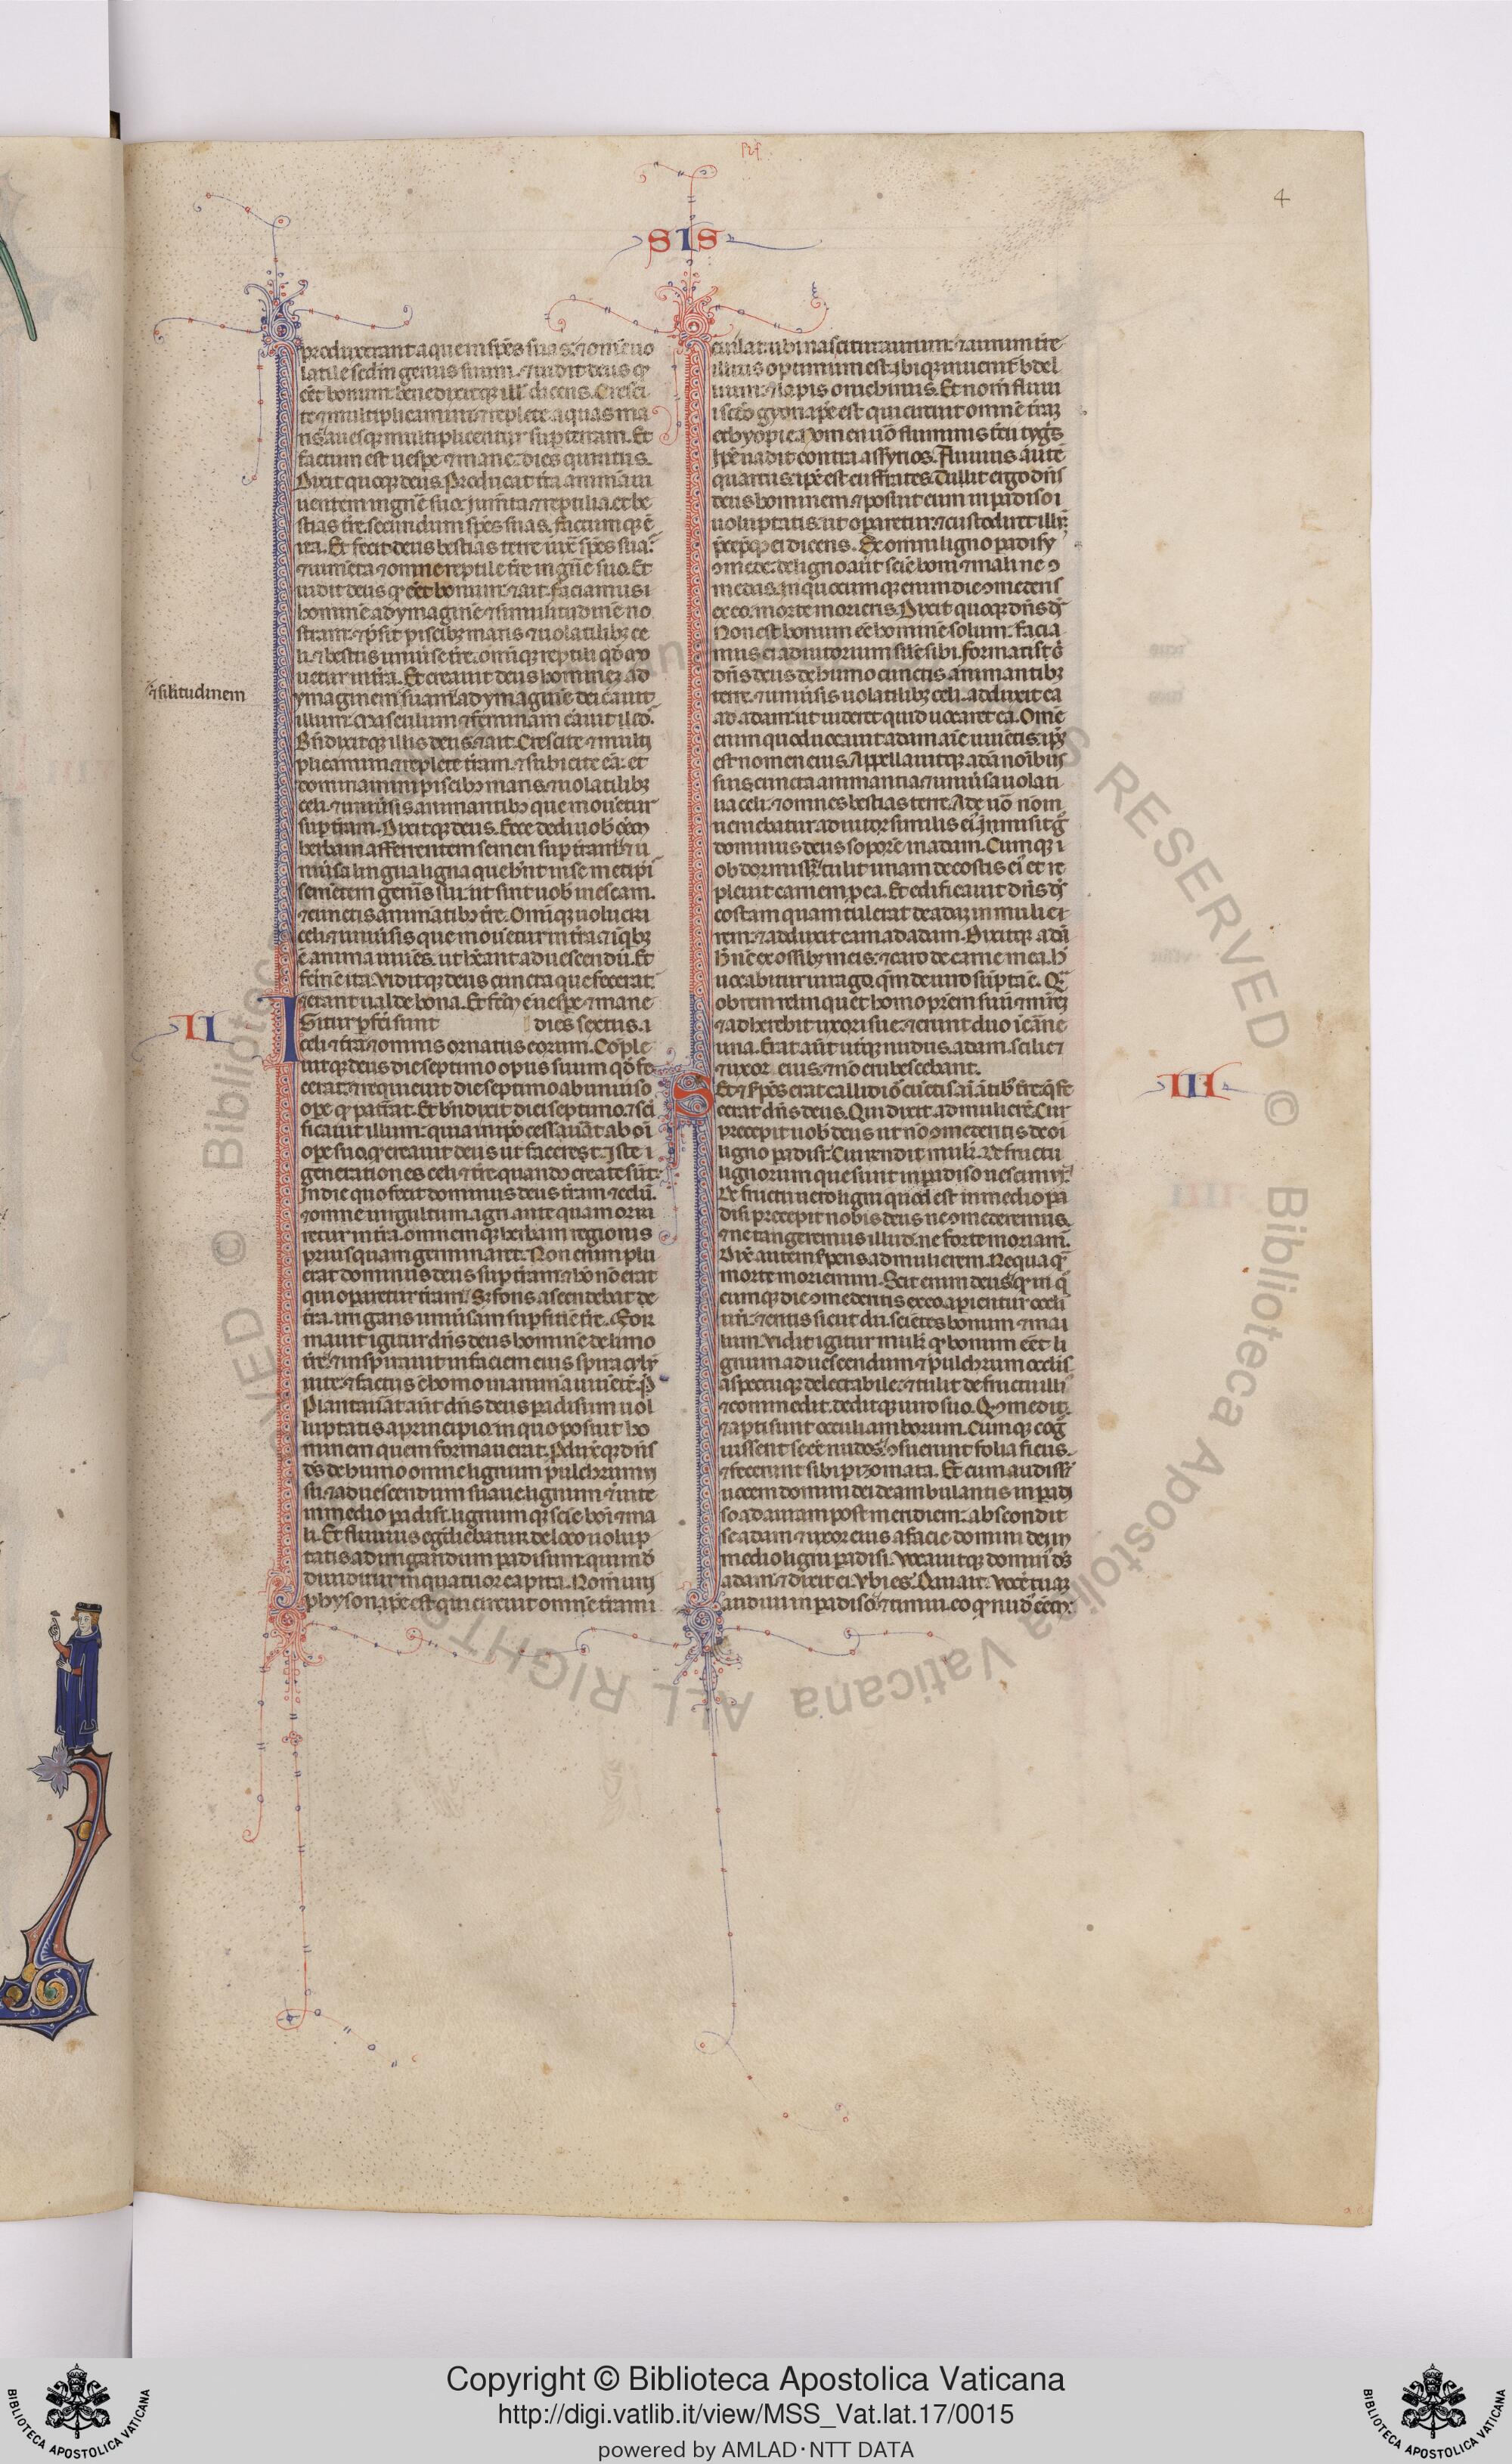 4
SIS
produxerant aque in spēs suas. ⁊ om̄e uo
latile sc̄dm genus suum. ⁊ uidit deus qꝫ
eēt bonum. benedixitqꝫ ill' dicens. Cresci
te ⁊ multiplicamini. ⁊ replete aquas ma
ris. auesqꝫ multiplicentur suꝑ terram. Et
factum est uesꝑe ⁊ mane. dies quintus.
Dixit quoqꝫ deus. Producat t̄ra animā ui
uentem in gn̄e suo. Jum̄ta ⁊ reptilia. et be
stias t̄re. secundum spēs suas. factumqꝫ ē
ita. Et fecit deus bestias terre iux̄ spēs suas.
⁊ ium̄eta ⁊ omne reptile t̄re in gn̄e suo. Et
uidit deus qꝫ eēt bonum. ⁊ ait. faciamus
hominē ad ymaginē ⁊ similitudinē no
stram. ⁊ p̄sit piscibꝫ maris ⁊ uolatilibꝫ ce
li. ⁊ bestiis uniuīse t̄re. omniqꝫ reptili qd̄ mo
uetur in t̄ra. Et creauit deus hominez ad
⁊ silitudinem
ymaginem suam. ad ymaginē dei c̄auit
illum. masculum ⁊ feminam c̄auit illos.
Bn̄dixitqꝫ illis deus. ⁊ ait. Crescite ⁊ multi
plicamini. ⁊ replete t̄ram. ⁊ subicite eā. et
dominamini piscibꝫ maris. ⁊ uolatilibꝫ
celi. ⁊ uniuīsis animantibꝫ que mouētur
suꝑ t̄ram. Dixitqꝫ deus. Ecce dedi uob' om̄
herbam afferentem semen suꝑ t̄ram. ⁊ u
niuīsa ligna que hn̄t in semetip̄is
semētem gen̄is sui. ut sint uob' in escam.
⁊ cunctis animātibꝫ t̄re. Omniqꝫ uolucri
celi. ⁊ uniuīsis que mouētur in t̄ra. ⁊ in qibꝫ
ē anima uiuēs. ut hēant ad uescendū. Et
fc̄m ē ita. Viditqꝫ deus cuncta que fecerat.
⁊ erant ualde bona. Et fc̄m ē uesꝑe ⁊ mane
dies sextus.
II
Igitur ꝑfc̄i sunt
celi ⁊ t̄ra. ⁊ omnis ornatus eorum. Cōple
uitqꝫ deus die septimo opus suum qd̄ fe
cerat. ⁊ requieuit die septimo ab uniuīso
oꝑe qꝫ patrarat. Et bn̄dixit diei septimo. ⁊ sc̄i
ficauit illum. quia in ip̄o cessauat ab om̄i
oꝑe suo. qꝫ creauit deus ut faceret. Iste
generationes celi ⁊ t̄re. quando create sūt.
In die quo fecit dominus deus t̄ram ⁊ celū.
⁊ omne uirgultum agri. ante quam orire
retur in t̄ra. omnemqꝫ herbam regionis
priusquam germinaret. Non enim plu
erat dominus deus suꝑ t̄ram. ⁊ hō nō erat
qui oꝑaretur t̄ram. Sꝫ fons ascendebat de
t̄ra. irrigans uniuīsam suꝑficiē t̄re. For
mauit igitur dn̄s deus hominē de limo
t̄re. ⁊ inspirauit in faciem eius spiraculum
uite. ⁊ factus ē homo in animā uiuētē.
Plantauat aūt dn̄s deus paradisum uol
luptatis a principio. in quo posuit ho
minem quem formauerat. Produxitqꝫ dn̄s
ds̄ de humo omne lignum pulchrum ui
su. ⁊ ad uescendum suaue. lignum ⁊ uite
in medio paradisi. lignumqꝫ scīe boni ⁊ ma
li. Et fluuius egrediebatur de loco uolup
tatis ad irrigandum paradisum. qui inde
diuiditur in quatuor capita. Nom̄ uni
physon. ip̄e est qui circuit omnē t̄ram
euilat. ubi nascitur aurum. ⁊ aurum t̄re
illius optimum est. ibiqꝫ inuenitur bdel
lium. ⁊ lapis onichinus. Et nom̄ fluuii
sc̄do gyon. ip̄e est qui circuit omnē t̄raz
ethyopie. Nomen uō fluminis t̄cii tygris
ip̄e uadit contra assyrios. Fluuius autē
quartus. ip̄e est euffrates. Tulit ergo dn̄s
deus hominem. ⁊ posuit eum in paradiso
uoluptatis. ut oꝑaretur. ⁊ custodiret illum.
p̄cepitqꝫ ei dicens. Ex omni ligno paradisy
ꝯmede. de ligno aūt scīe boni ⁊ mali ne ꝯ
medas. In quocumqꝫ enim die ꝯmederis
ex eo. morte morieris. Dixit quoqꝫ dn̄s ds̄
Non est bonum eē hominē solum. facia
mus ei adiutorium silē sibi. formatis igitur
dn̄s deus de humo cunctis animantibꝫ
terre. ⁊ uniuīsis uolatilibꝫ celi. adduxit ea
ad adam. ut uideret quid uocaret ea. Omē
enim quod uocauit adam aīe uiuētis. ip̄m
est nomen eius. Appellauitqꝫ adā noībus
suis cuncta animantia. ⁊ uniuīsa uolati
lia celi. ⁊ omnes bestias terre. Ade uō non
ueniebatur adiutor similis ei. Inmisit g̊
dominus deus soporē in adam. Cumqꝫ
obdormisset. tulit unam de costis ei'. et re
pleuit carnem ꝑ ea. Et edificauit dn̄s ds̄
costam quam tulerat de adaz in mulie
rem. ⁊ adduxit eam ad adam. Dixitqꝫ adā
h̄ nūc ex ossibꝫ meis. ⁊ caro de carne mea. h̄
uocabitur uirago. qm̄ de uiro sūpta ē. Q
ob rem relinquet homo pr̄em suū ⁊ mr̄ez
⁊ adherebit uxori sue. ⁊ erunt duo ī carne
una. Erat aūt uterqꝫ nudus. adam scilicet
⁊ uxor eius. ⁊ nō erubescebant.
III
Set ⁊ sꝑēs erat callidior cūctis aīantibꝫ t̄re. q̄ fe
cerat dn̄s deus. Qui dixit ad mulierē. Cur
precepit uob' deus ut nō ꝯmederitis de oī
ligno paradisi. Cui rendit mulier. De fructu
lignorum que sunt in paradiso uescimur.
De fructu uero ligni quod est in medio para
disi precepit nobis deus ne ꝯmederemus.
⁊ ne tangeremus illud. ne forte moriamur.
Dix̄ autem sꝑens ad mulierem. Nequaqꝫ
morte moriemini. Scit enim deus qꝫ in q̄
cumqꝫ die ꝯmederitis ex eo. aꝑientur oculi
ur̄i. ⁊ eritis sicut dii. scientes bonum ⁊ ma
lum. Vidit igitur mulier qꝫ bonum eēt li
gnum ad uescendum ⁊ pulchrum oculis
aspectuqꝫ delectabile. ⁊ tulit de fructu illi'
⁊ commedit. deditqꝫ uiro suo. Qui ꝯmedit.
⁊ aꝑti sunt occuli amborum. Cumqꝫ cog
uissent se eē nudos. ꝯsuerunt folia ficus.
⁊ fecerunt sibi ꝑizomata. Et cum audissent
uocem domini dei deambulantis in paradi
so ad auram post meridiem. abscondit
se adam ⁊ uxor eius a facie domini dei in
medio ligni paradisi. Vocauitqꝫ domin' ds̄
adam. ⁊ dixit ei. Vbi es. Qui ait. Vocē tuaz
audiui in paradiso. ⁊ timui. eo qꝫ nudus eēm.
Copyright © Biblioteca Apostolica Vaticana
http://digi.vatlib.it/view/MSS_Vat.lat.17/0015
powered by AMLAD·NTT DATA
BIBLIOTECA APOSTOLICA VATICANA
BIBLIOTECA APOSTOLICA VATICANA